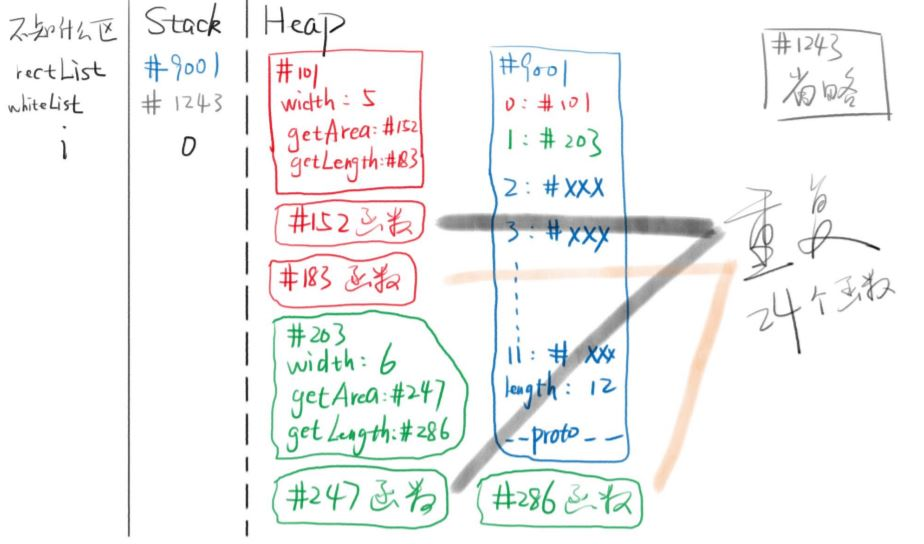 不知什么区
Stack
Heap
rectList
#9001
whiteList
#1243
i
0
#101
width: 5
getArea:#152
getLength:#183
#152 函数
#183 函数
#203
width: 6
getArea:#247
getLength:#286
#247 函数
#286 函数
#9001
0: #101
1: #203
2: #XXX
3: #XXX
11: # XXX
length: 12
--proto--
#1243
省略
重复
24个函数